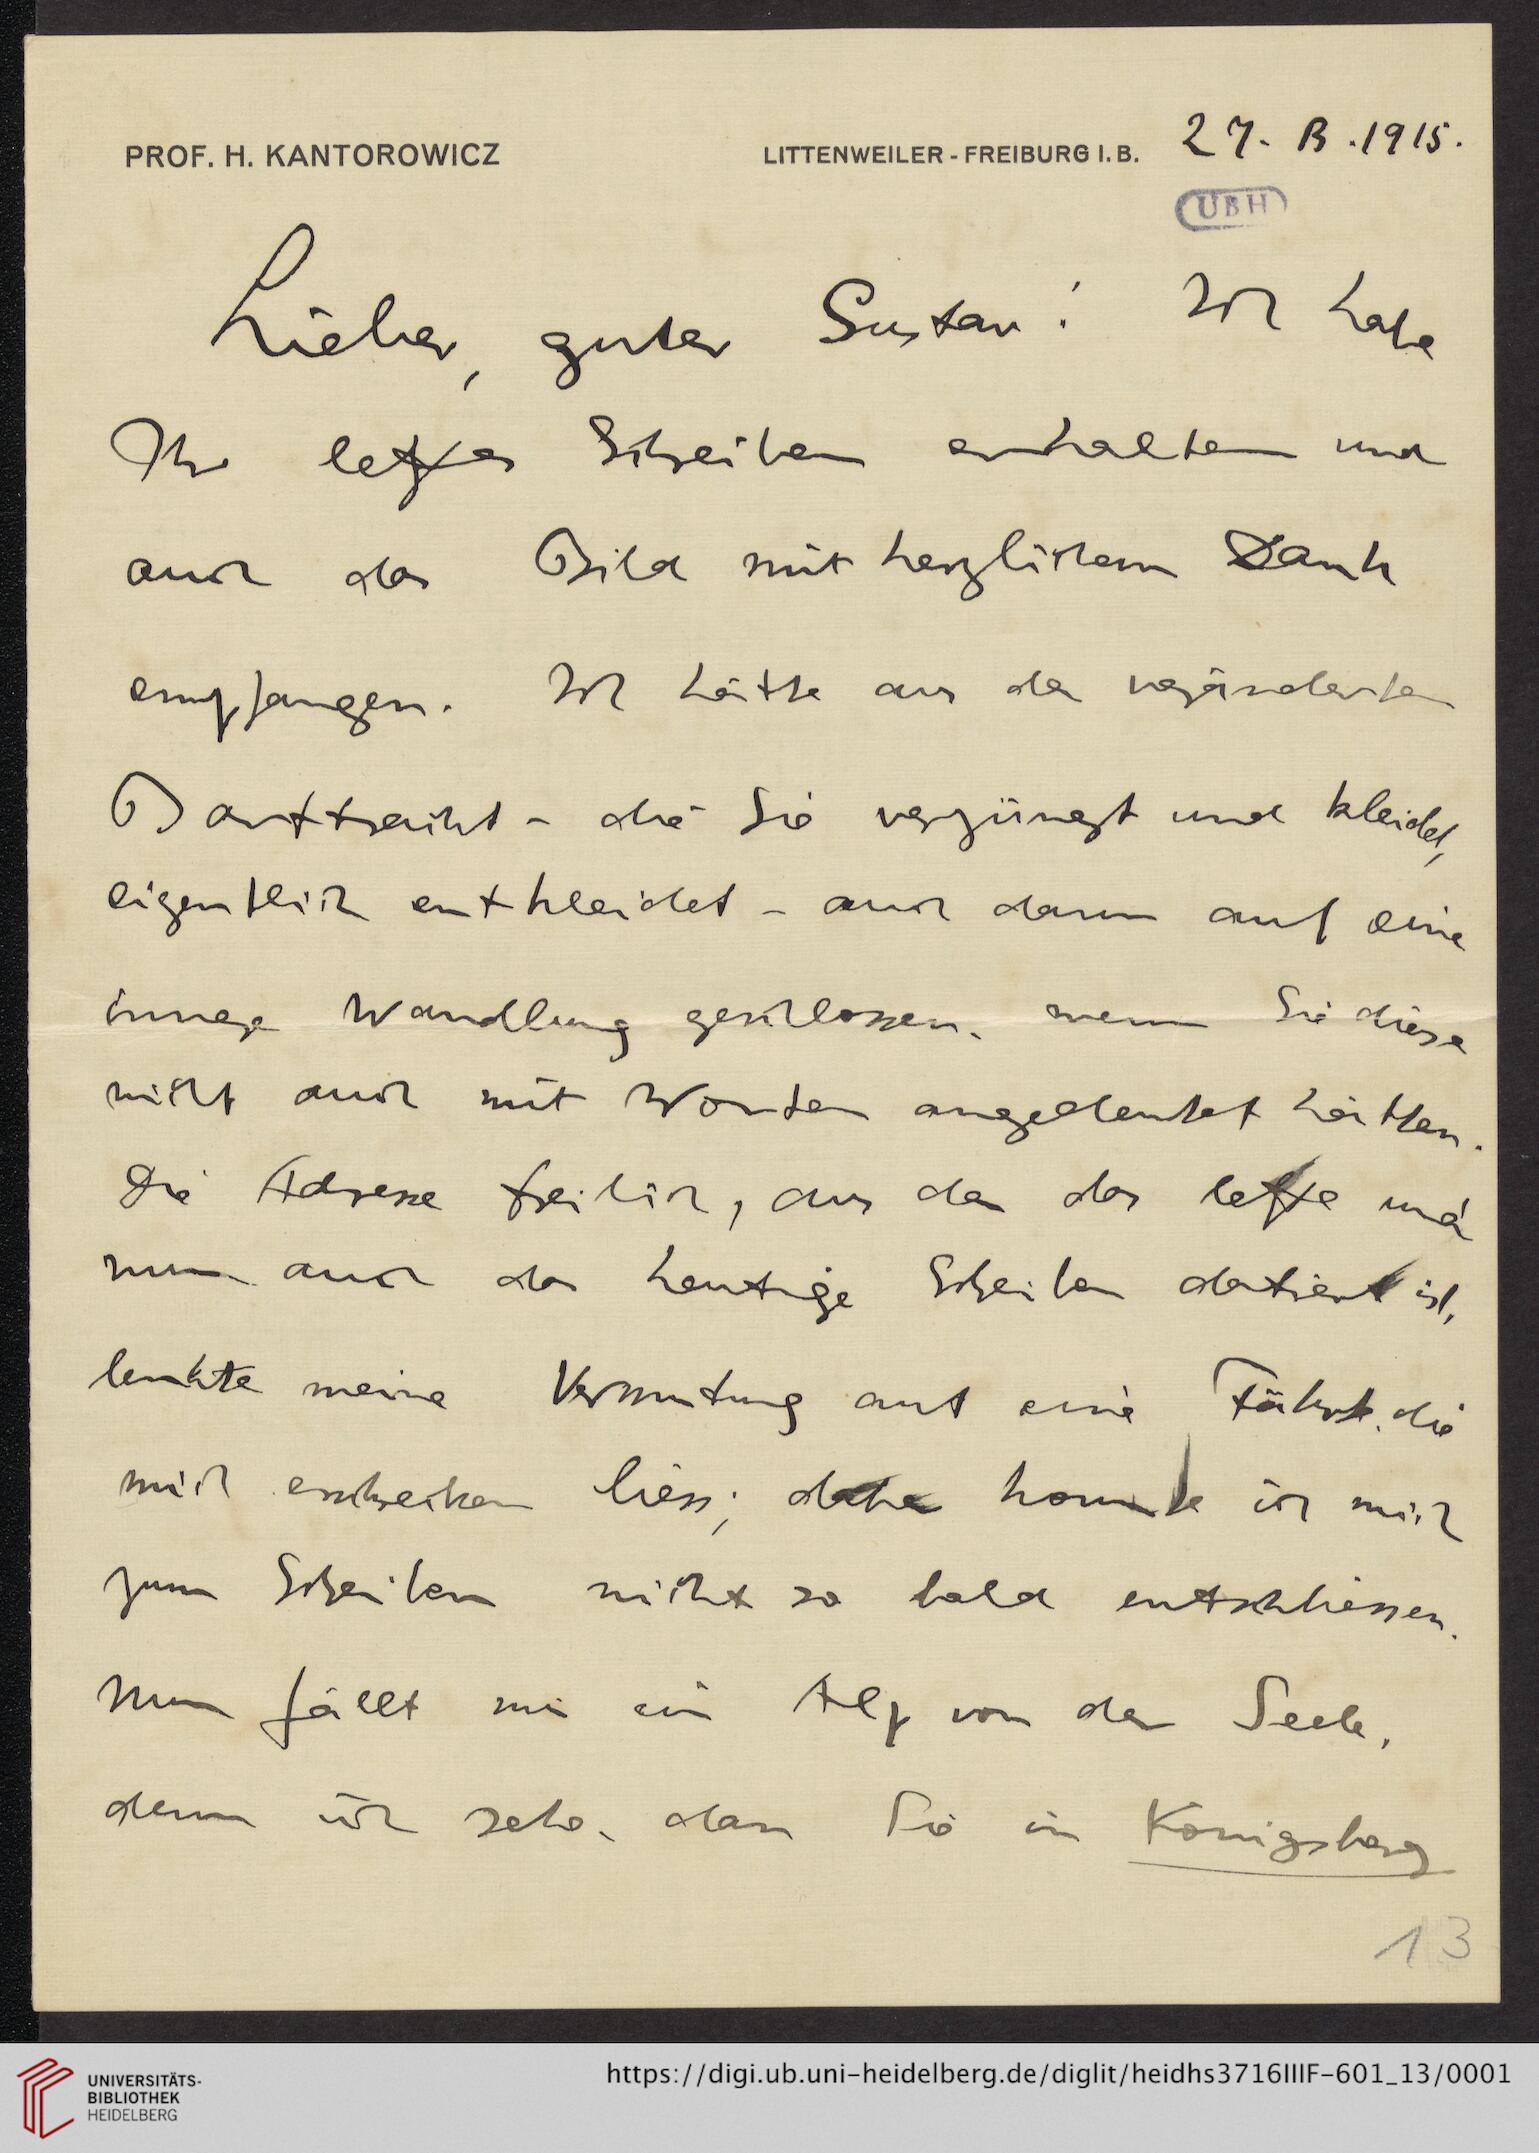 PROF. H. KANTOROWICZ LITTENWEILER - FREIBURG I. B. 27. 1915.
UBH
Lieber, guter Gustav! Ich habe
Ihr letztes Schreiben erhalten und
auch das Bild mit herzlichem Dank
empfangen. Ich hätte aus der veränderten
Barttracht - die Sie verjüngt und kleidet,
eigentlich entkleidet - auch dann auf eine
innere Wandlung geschlossen, wenn Sie diese
nicht auch mit Worten angedeutet hätten.
Die Adresse freilich, aus der das letzte und
nun auch das heutige Schreiben datiert ist,
lenkte meine Vermutung auf eine Fährte, die
mich erschrecken liess; daher konnte ich mich
zum Schreiben nicht so bald entschliessen.
Nun fällt mir ein Alp von der Seele,
denn ich sehe, dass Sie in Königsberg
13
UNIVERSITÄTS-
BIBLIOTHEK
HEIDELBERG
https://digi.ub.uni-heidelberg.de/diglit/heidhs3716IIIF-601_13/0001